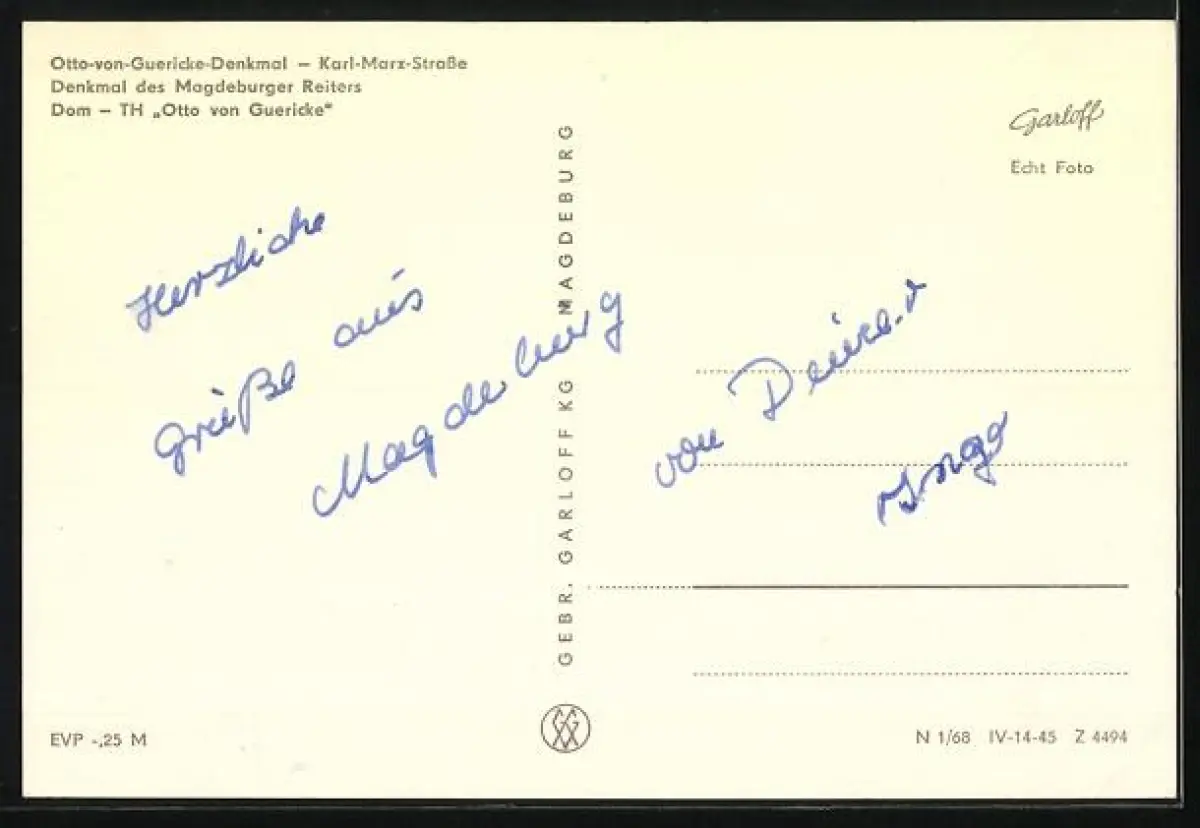 Otto-von-Guericke-Denkmal – Karl-Marx-Straße
Denkmal des Magdeburger Reiters
Dom – TH „Otto von Guericke“
Garloff
Echt Foto
Herzliche
Grüße aus
Magdeburg
von
Ingo
GEBR. GARLOFF KG MAGDEBURG
EVP -,25 M
N 1/68 IV-14-45 Z 4494